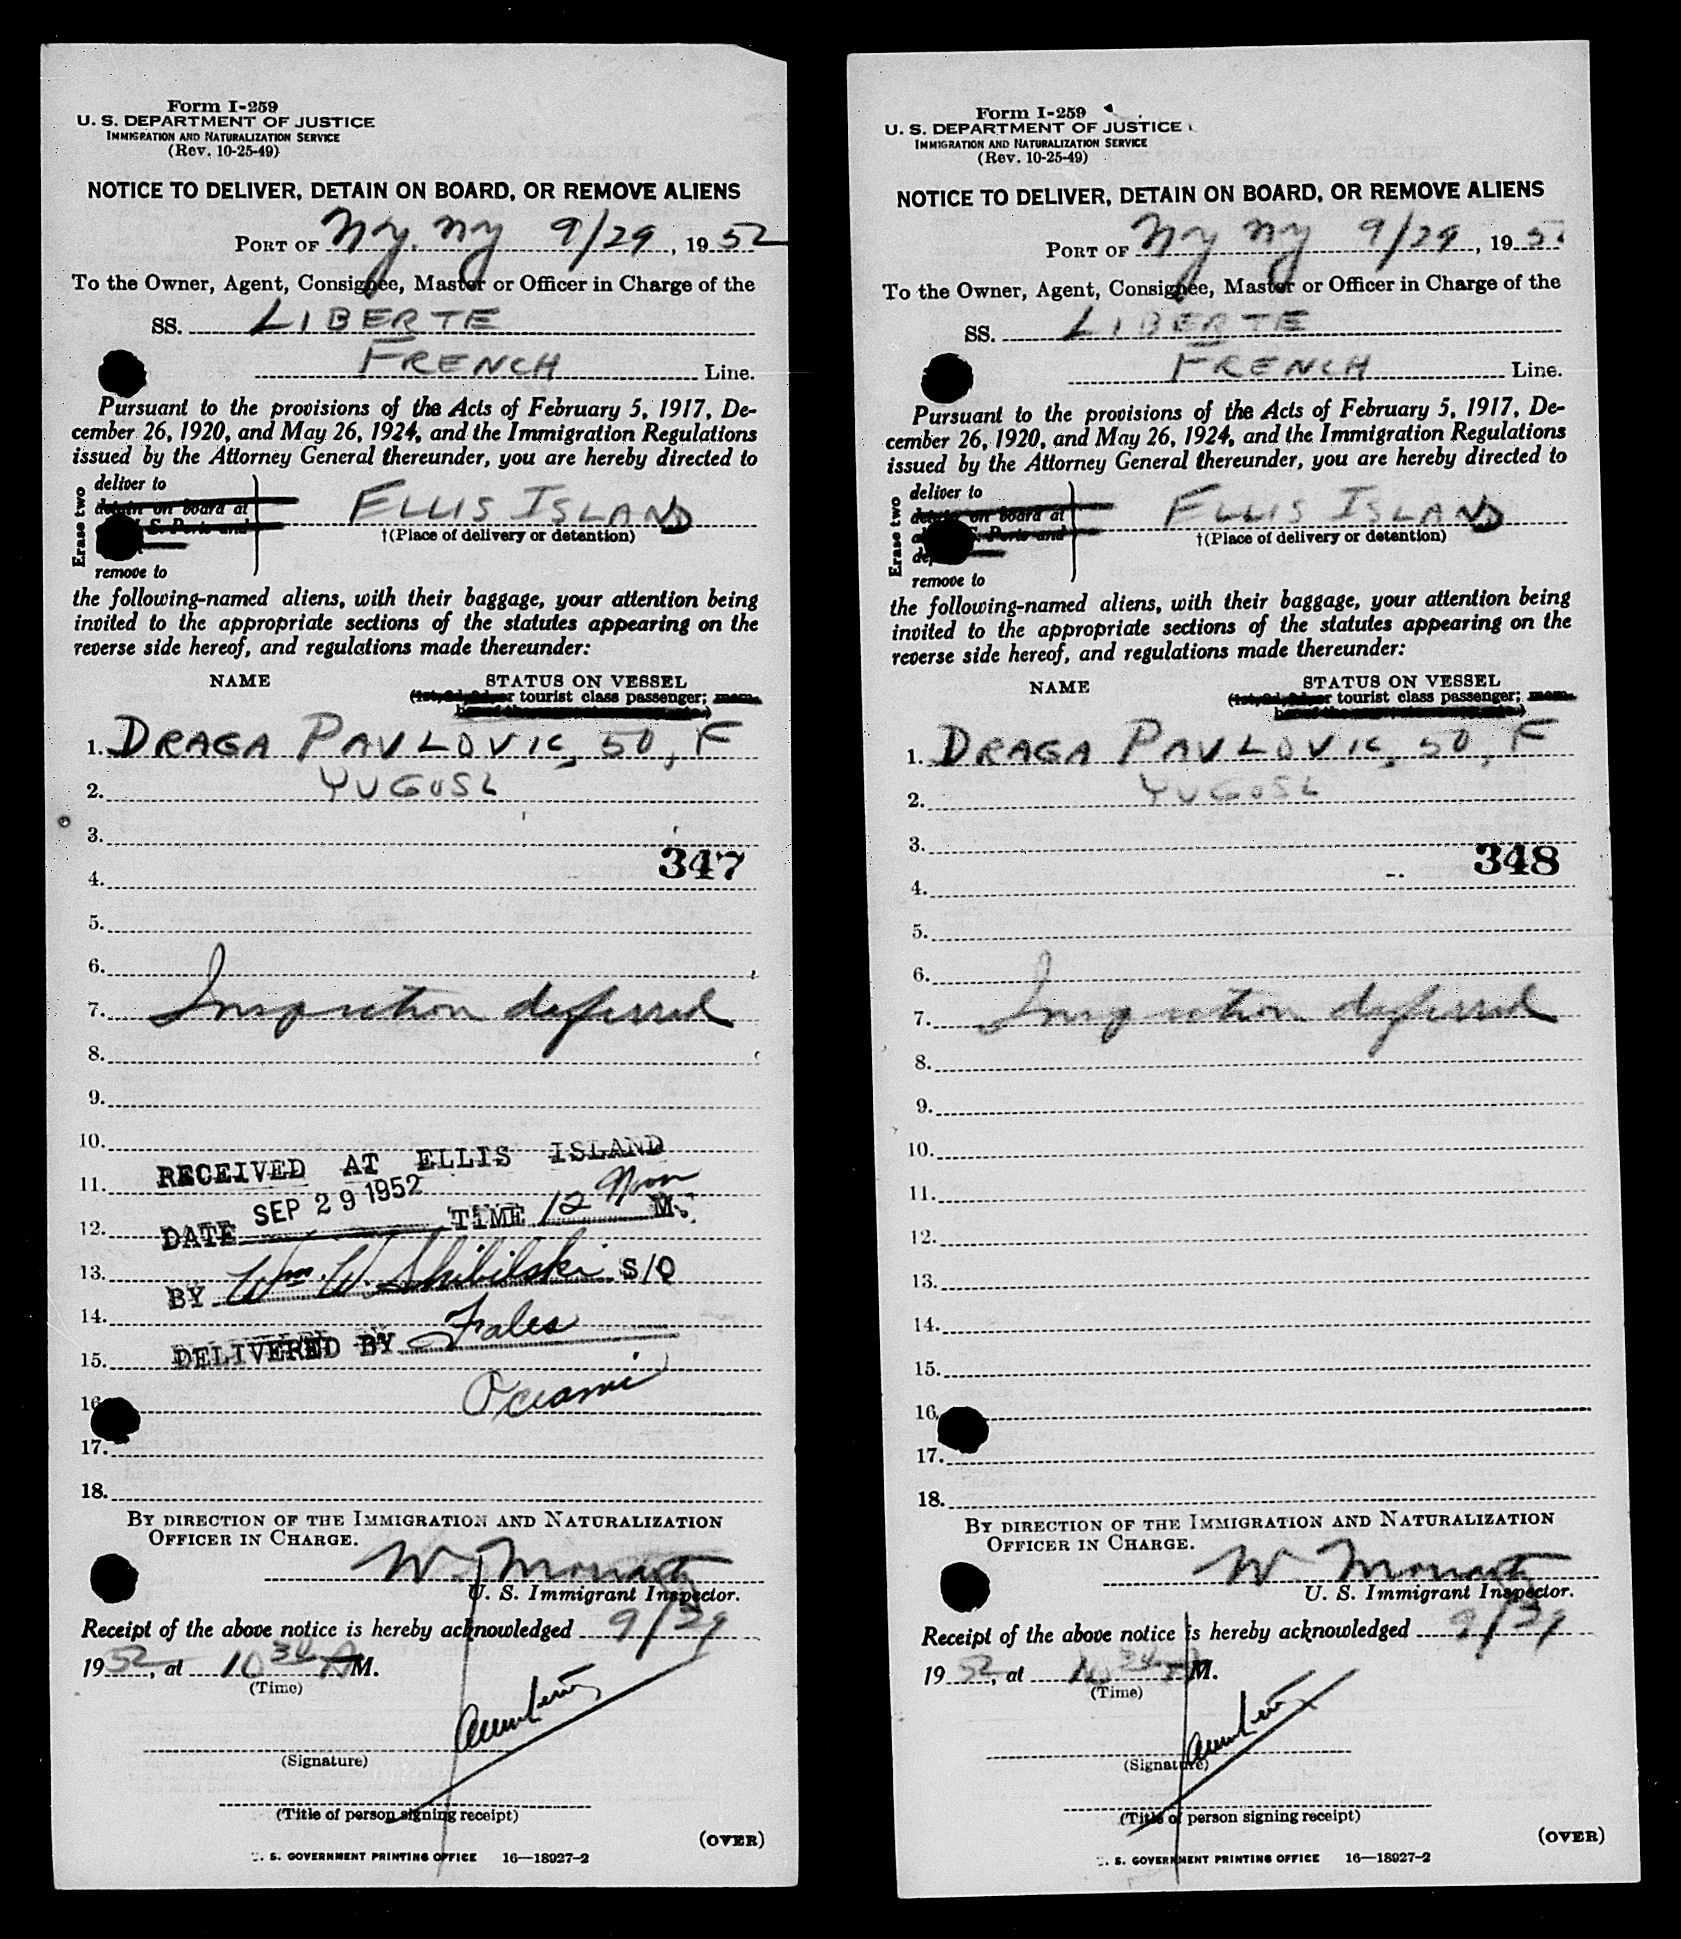 Form I-259
U. S. DEPARTMENT OF JUSTICE
IMMIGRATION AND NATURALIZATION SERVICE
(Rev. 10-25-49)
NOTICE TO DELIVER, DETAIN ON BOARD, OR REMOVE ALIENS
PORT OF NY. NY 9/29, 1952
To the Owner, Agent, Consignee, Master or Officer in Charge of the
SS. LIBERTE
FRENCH Line.
Pursuant to the provisions of the Acts of February 5, 1917, De-
cember 26, 1920, and May 26, 1924, and the Immigration Regulations
issued by the Attorney General thereunder, you are hereby directed to
Erase two
deliver to
detain on board at
S. Ports and
remove to
ELLIS ISLAND
†(Place of delivery or detention)
the following-named aliens, with their baggage, your attention being
invited to the appropriate sections of the statutes appearing on the
reverse side hereof, and regulations made thereunder:
NAME STATUS ON VESSEL
or tourist class passenger;
1. DRAGA PAVLOVIC, 50, F
2. YUGOSL
3.
347
4.
5.
6.
7. Inspection deferred
8.
9.
10.
RECEIVED AT ELLIS ISLAND
11.
DATE SEP 29 1952 TIME 12 Noon M.
12.
13.
BY Wm. W. Shibilski S/O
14.
DELIVERED BY Fales
15.
Oceanic
16
17.
18.
BY DIRECTION OF THE IMMIGRATION AND NATURALIZATION
OFFICER IN CHARGE.
W. Moriarty
U. S. Immigrant Inspector.
Receipt of the above notice is hereby acknowledged 9/29
1952, at 10 30 AM.
(Time)
(Signature)
(Title of person signing receipt)
(OVER)
. S. GOVERNMENT PRINTING OFFICE 16—18927-2
Form I-259
U. S. DEPARTMENT OF JUSTICE
IMMIGRATION AND NATURALIZATION SERVICE
(Rev. 10-25-49)
NOTICE TO DELIVER, DETAIN ON BOARD, OR REMOVE ALIENS
PORT OF NY NY 9/29, 195
To the Owner, Agent, Consignee, Master or Officer in Charge of the
SS. LIBERTE
FRENCH Line.
Pursuant to the provisions of the Acts of February 5, 1917, De-
cember 26, 1920, and May 26, 1924, and the Immigration Regulations
issued by the Attorney General thereunder, you are hereby directed to
Erase two
deliver to
detain on board at
S. Ports and
remove to
ELLIS ISLAND
†(Place of delivery or detention)
the following-named aliens, with their baggage, your attention being
invited to the appropriate sections of the statutes appearing on the
reverse side hereof, and regulations made thereunder:
NAME STATUS ON VESSEL
or tourist class passenger;
1. DRAGA PAVLOVIC, 50, F
2. YUGOSL
3.
348
4.
5.
6.
7. Inspection deferred
8.
9.
10.
11.
12.
13.
14.
15.
16.
17.
18.
BY DIRECTION OF THE IMMIGRATION AND NATURALIZATION
OFFICER IN CHARGE.
W Moriarty
U. S. Immigrant Inspector.
Receipt of the above notice is hereby acknowledged 9/29
1952, at 10 30 AM.
(Time)
(Signature)
(Title of person signing receipt)
(OVER)
. S. GOVERNMENT PRINTING OFFICE 16—18927-2